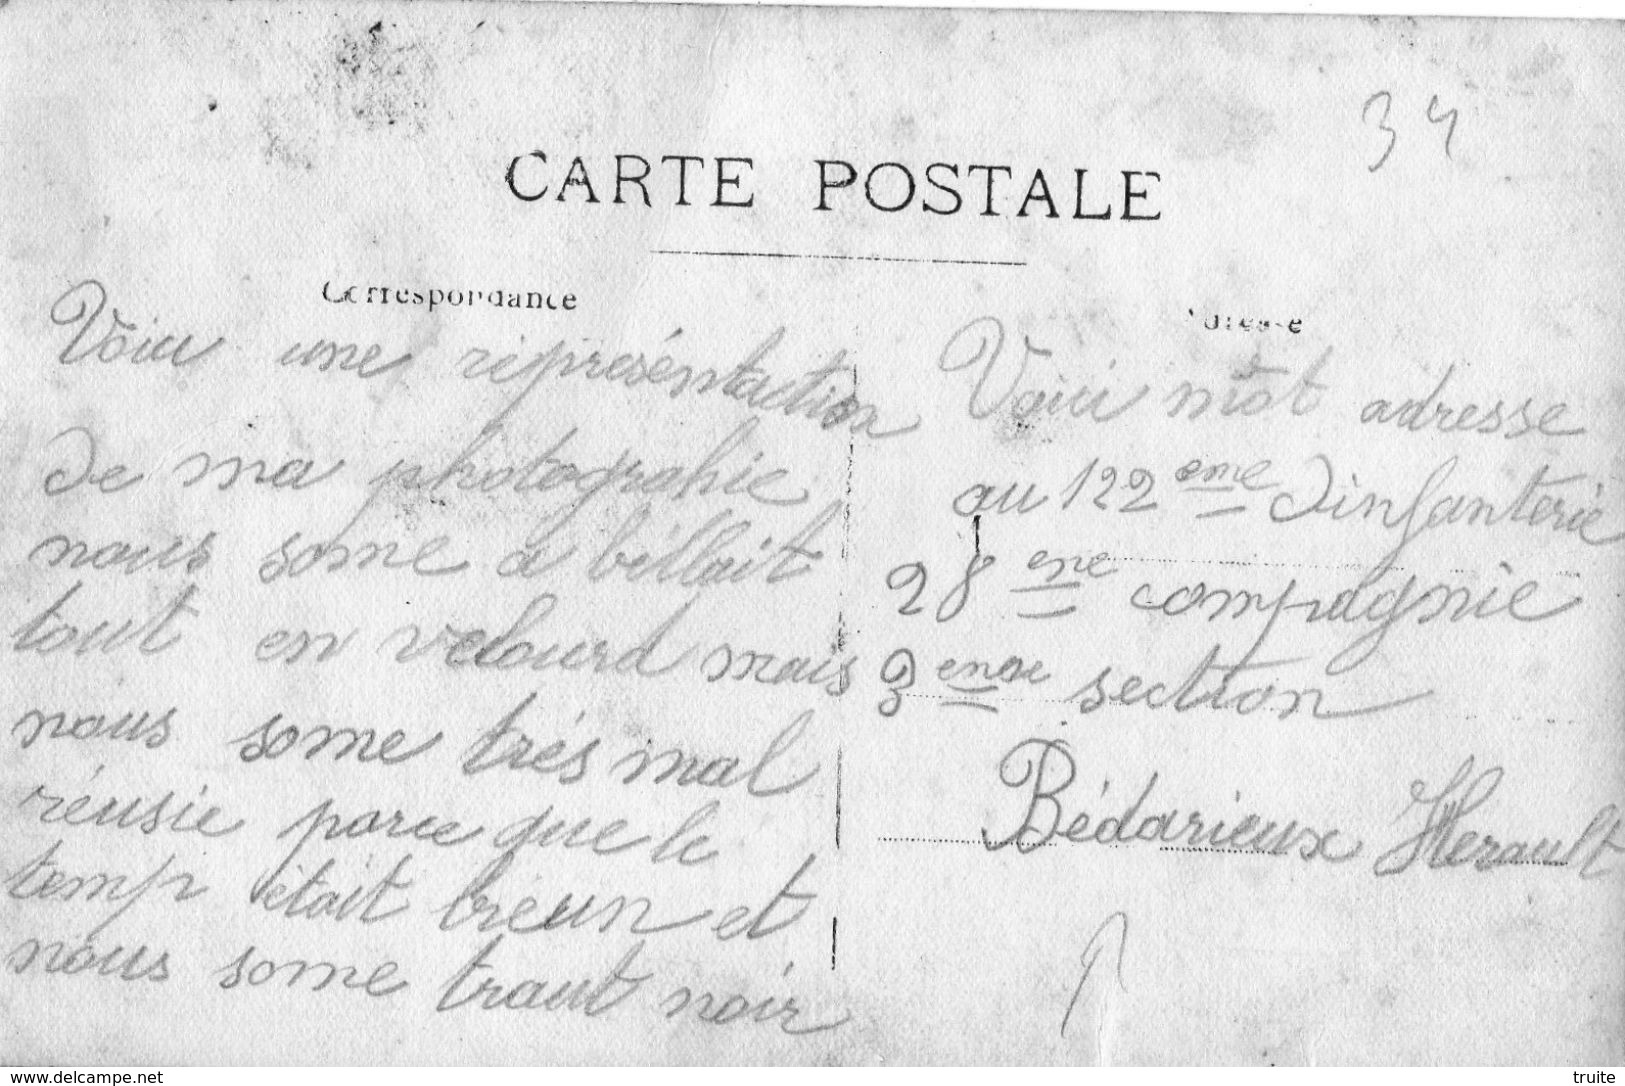 34
CARTE POSTALE
Correspondance
Voicu une représéntaction
de ma photograhie
nous some a billait
tout en velourd mais
nous some trés mal
réusie parce que le
temp était breun et
nous some traut noir
Adresse
Voici mot adresse
au 122 eme dinfanterie
28 eme compagnie
3 eme section
Bédarieux Herault
www.delcampe.net
truite